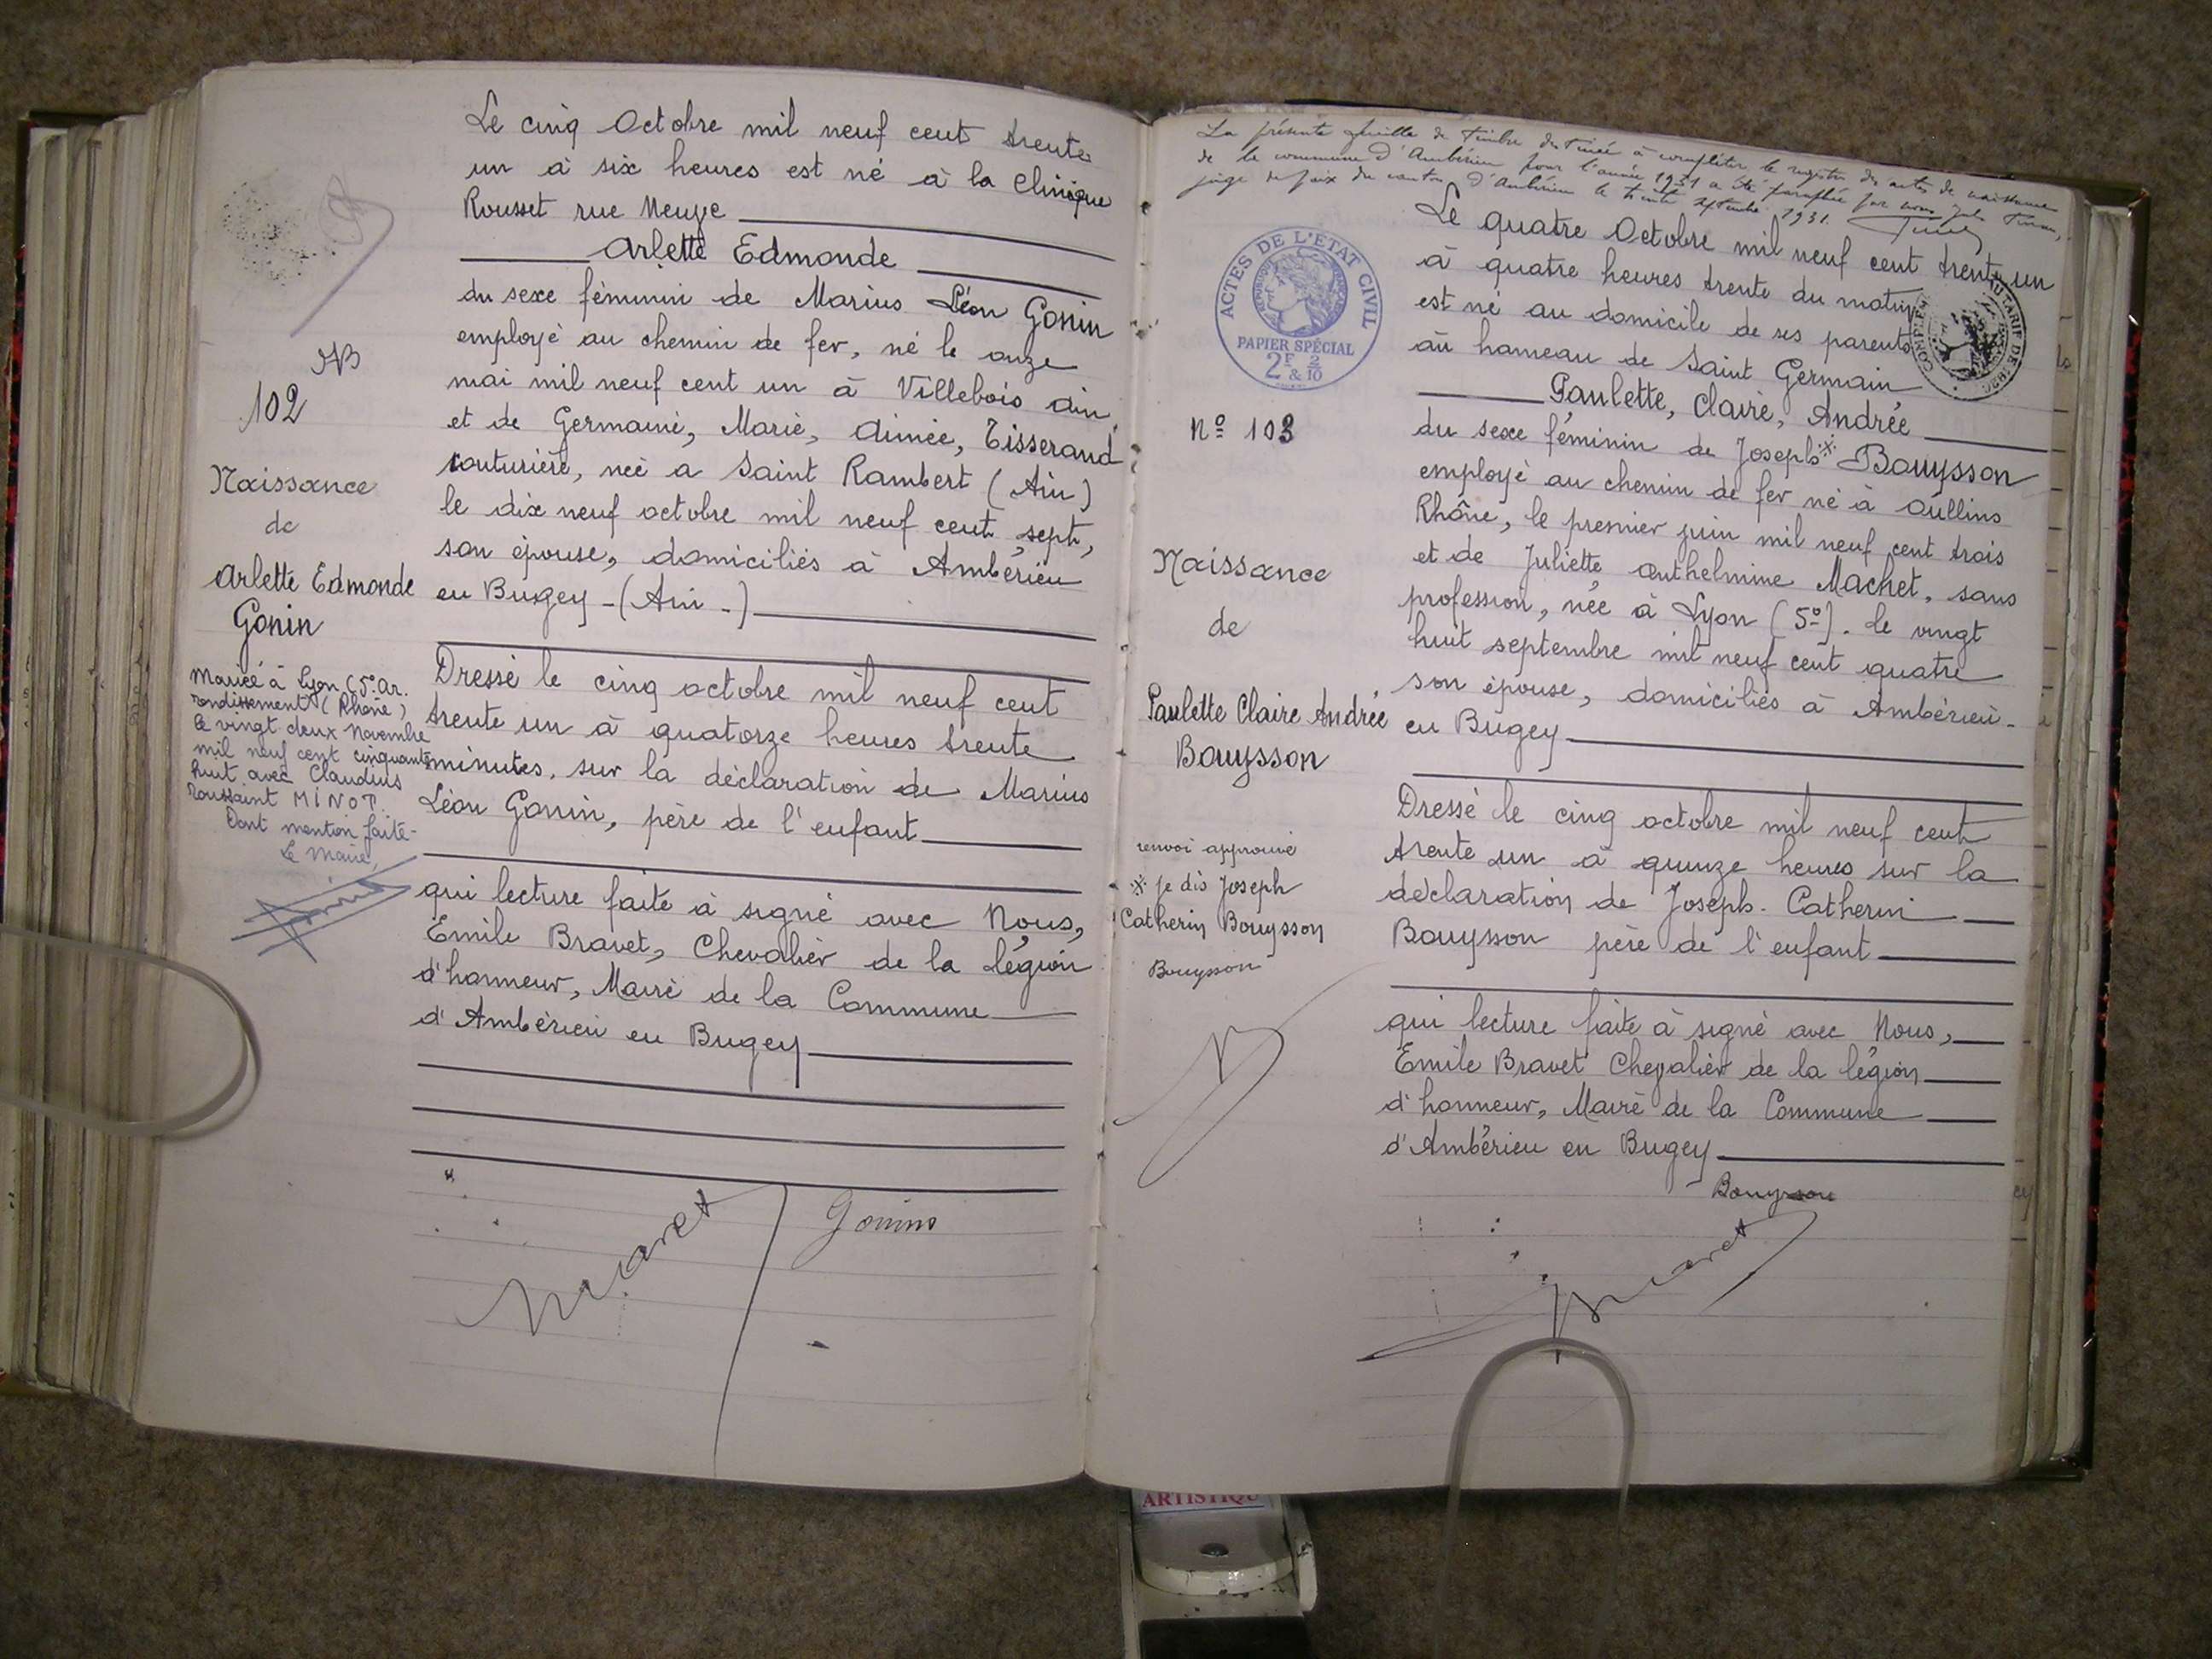 Le cinq Octobre mil neuf cent trente
un à six heures est né à la Clinique
Rousset rue Neuve
Arlette Edmonde
du sexe féminin de Marius Léon Gonin
employé au chemin de fer, né le onze
mai mil neuf cent un à Villebois Ain
et de Germaine, Marie, Aimée, Tisserand
couturière, née a Saint Rambert (Ain)
le dix neuf octobre mil neuf cent sept,
son épouse, domiciliés à Ambérieu
en Bugey - (Ain -)
Dressé le cinq octobre mil neuf cent
trente un à quatorze heures trente
minutes, sur la déclaration de Marius
Léon Gonin, père de l'enfant
qui lecture faite à signé avec Nous,
Emile Bravet, Chevalier de la légion
d'honneur, Maire de la Commune
d'Ambérieu en Bugey
Gonin
102
Naissance
de
Arlette Edmonde
Gonin
Mariée à Lyon (5e Ar.
rondissement (Rhône)
le vingt deux Novembre
mil neuf cent cinquante
huit avec Claudius
Toussaint MINOT.
Dont mention faite-
Le Maire,
La présente feuille de timbre destinée à compléter le registre des actes de naissance
de la commune d'Ambérieu pour l'année 1931 a été paraphée par nous
juge de paix du canton d'Ambérieu le trente septembre 1931.
ACTES DE L'ETAT CIVIL
REPUBLIQUE FRANÇAISE
PAPIER SPÉCIAL
2F & 2/10
AU TARIF DE
Le quatre Octobre mil neuf cent trente un
à quatre heures trente du matin
est né au domicile de ses parents
au hameau de Saint Germain
Paulette, Claire, Andrée
du sexe féminin de Joseph ※ Bouysson
employé au chemin de fer né à Oullins
Rhône, le premier juin mil neuf cent trois
et de Juliette Anthelmine Machet, sans
profession, née à Lyon (5e). le vingt
huit septembre mil neuf cent quatre
son épouse, domiciliés à Ambérieu-
en Bugey
Dressé le cinq octobre mil neuf cent
trente un à quinze heures sur la
déclaration de Joseph. Catherin
Bouysson père de l'enfant
qui lecture faite à signé avec Nous,
Emile Bravet Chevalier de la légion
d'honneur, Maire de la Commune
d'Ambérieu en Bugey
Bouysson
No 103
Naissance
de
Paulette Claire Andrée
Bouysson
renvoi approuvé
※ je dis Joseph
Catherin Bouysson
Bouysson
ARTISTIQU